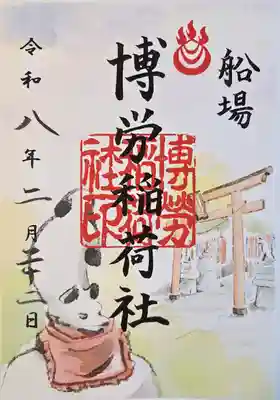 船場
博労稲荷社
博勞稲荷社印
令和八年二月二十二日